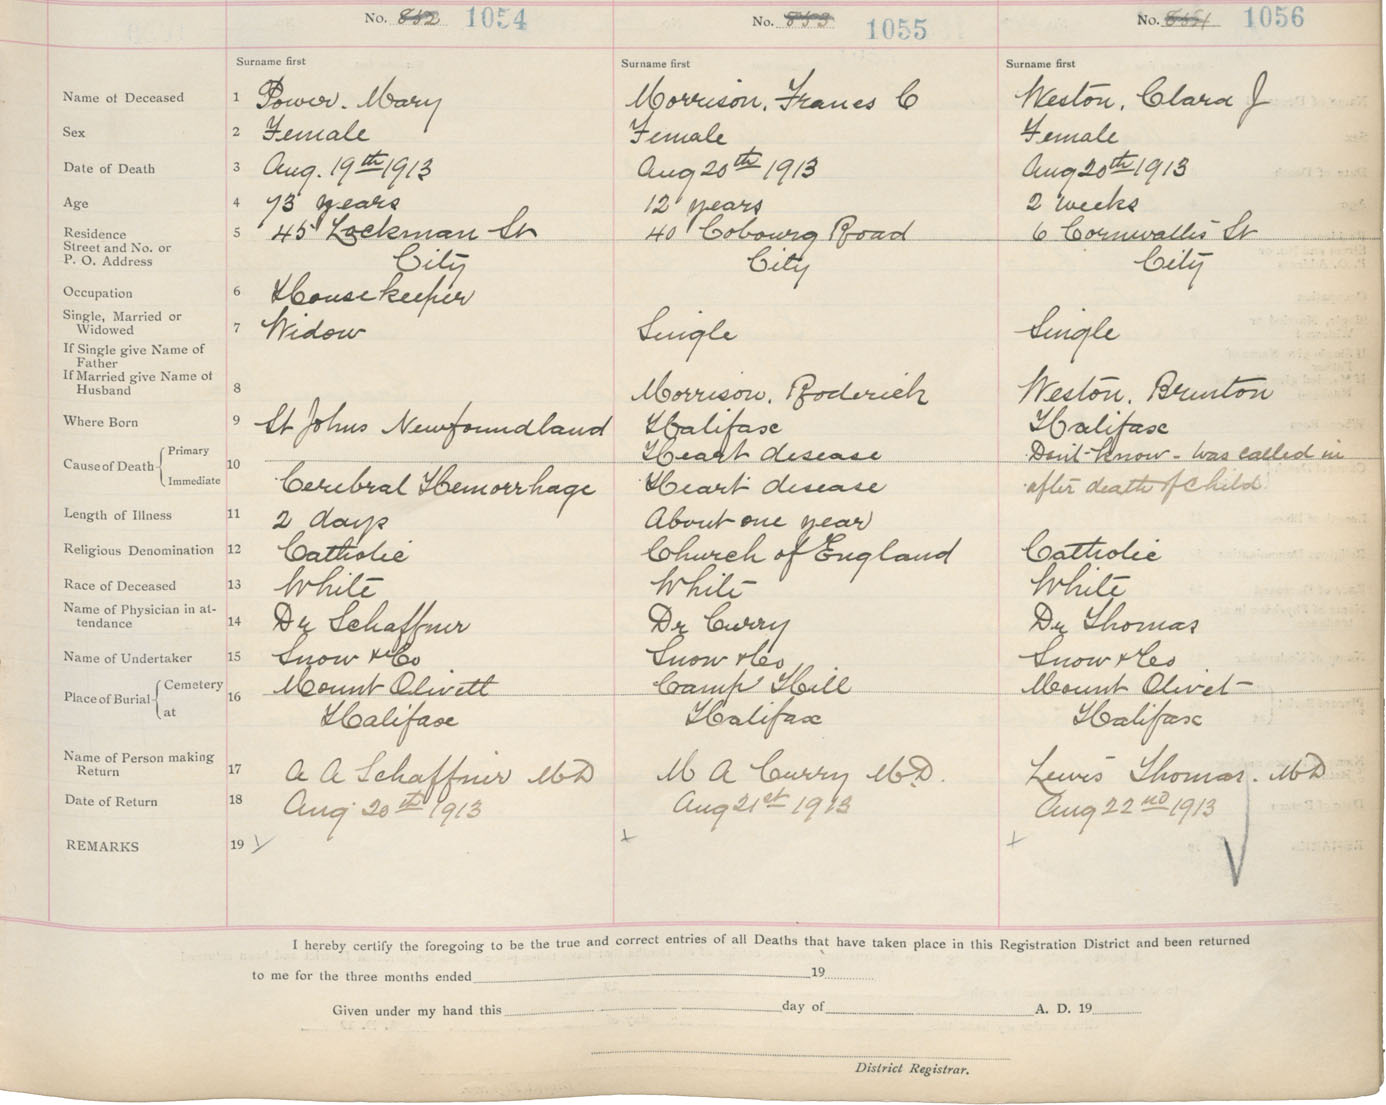 No. 852 1054 No. 853 1055 No. 854 1056
Surname first Surname first Surname first
Name of Deceased 1 Power. Mary Morrison, Frances C Weston, Clara J
Sex 2 Female Female Female
Date of Death 3 Aug. 19th 1913 Aug 20th 1913 Aug 20th 1913
Age 4 73 years 12 years 2 weeks
Residence 5 45 Lockman St 40 Cobourg Road 6 Cornwallis St
Street and No. or
P. O. Address City City City
Occupation 6 Housekeeper
Single, Married or
Widowed 7 Widow Single Single
If Single give Name of
Father
If Married give Name of
Husband 8 Morrison, Roderick Weston, Brunton
Where Born 9 St Johns Newfoundland Halifax Halifax
Cause of Death Primary 10 Heart disease Don't know - was called in
Immediate Cerebral Hemorrhage Heart disease after death of child
Length of Illness 11 2 days About one year
Religious Denomination 12 Catholic Church of England Catholic
Race of Deceased 13 White White White
Name of Physician in at-
tendance 14 Dr Schaffner Dr Curry Dr Thomas
Name of Undertaker 15 Snow & Co Snow & Co Snow & Co
Place of Burial Cemetery 16 Mount Olivett Camp Hill Mount Olivet
at Halifax Halifax Halifax
Name of Person making
Return 17 A A Schaffner MD M A Curry M.D. Lewis Thomas. MD
Date of Return 18 Aug 20th 1913 Aug 21st 1913 Aug 22nd 1913
REMARKS 19
I hereby certify the foregoing to be the true and correct entries of all Deaths that have taken place in this Registration District and been returned
to me for the three months ended 19
Given under my hand this day of A. D. 19
District Registrar.